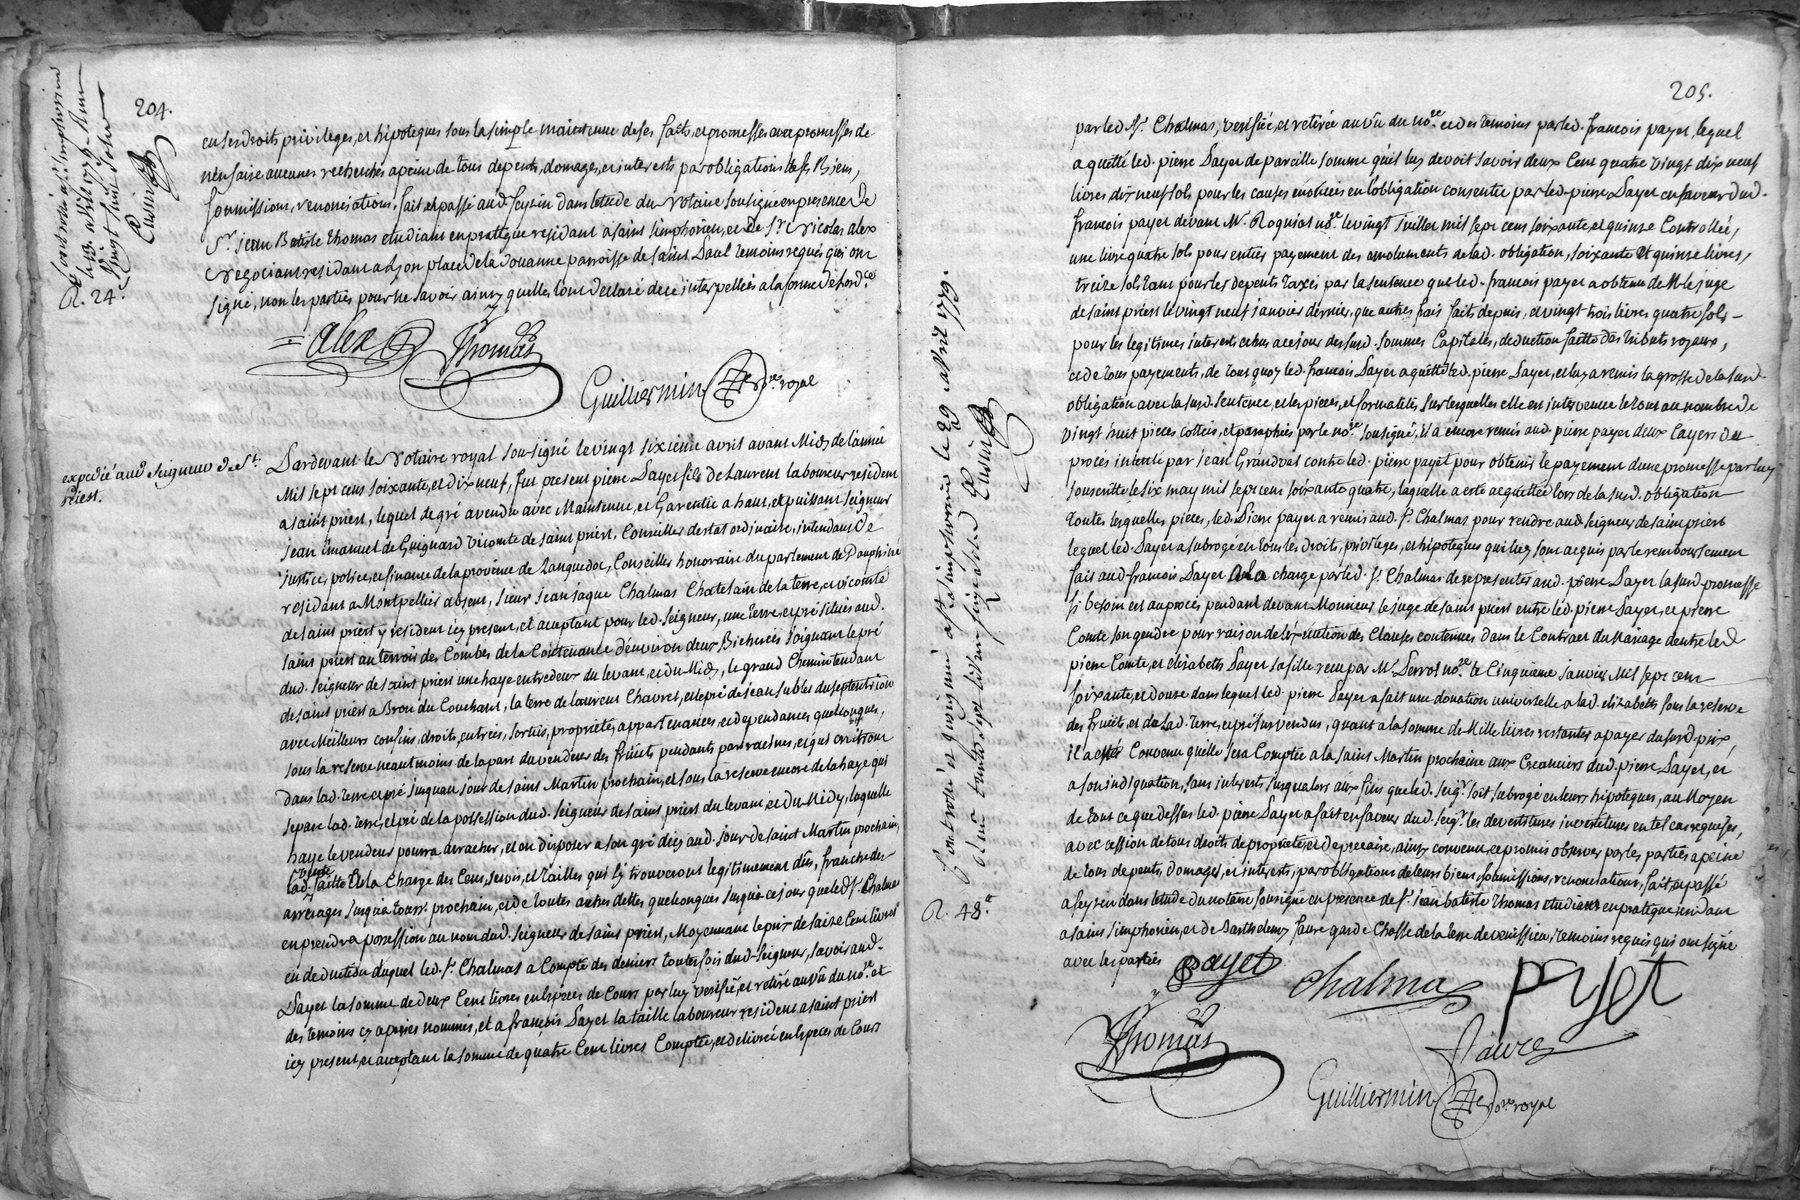 204.
en ses droits privileges, et hipoteques sous la simple maintenue de ses faits, et promesses avec promesses de
n'en faire aucunes recherches a peine de tous depents, domages, et interests par obligations de ses Biens,
soumissions, renonciations. fait et passé aud. feyzin dans letude du Notaire soussigne en presence de
Sr. jean Batiste Thomas etudiant en pratique residant a saint simphorien, et De Sr. Nicolas alex
Negociant residant a Lyon place de la douanne parroisse de saint Paul temoins requis qui ont
signé, non les parties pour ne savoir ainsy quelles l'ont declaré de ce interpellées a la forme de l'ord.ce
alex Thomas
Guilliermin no.re royal
expedié aud. Seigneur de St.
Priest.
Pardevant le Notaire royal sousigné le vingt sixieme avril avant Midy de l'année
Mil sept cens soixante, et dix neuf, fut present pierre Payet fils de Laurent laboureur resident
a saint priest, lequel de gré a vendu avec Maintenue, et Garentie a haut, et puissant seigneur
jean Emanuel de Guignard vicomte de saint priest, Conseiller destat ordinaire, intendant de
justice, police, et finance de la province de Languedoc, Conseiller honoraire du parlement de Dauphiné
residant a Montpellier absent, sieur jean jaque Chalmas Chatelain de la terre, et vicomté
de saint priest y resident icy present, et aceptant pour led. Seigneur, une terre, et pré situés aud.
saint priest au terroir des Combes de la Contenance d'environ deux Bicherées joignant le pré
dud. seigneur de saint priest une haye entredeux du levant, et du Midy, le grand Chemin tendant
de saint priest a Bron du Couchant, la terre de laurent Chavret, et le pré de jean sables du septentrion
avec Meilleurs confins, droits, entrées, sorties, proprieté, appartenances, et dependances quelconques,
sous la reserve neantmoins de la part du vendeur des fruits pendants par racines, et qui croitront
dans lad. terre, et pré jusqu'au jour de saint Martin prochain, et sous la reserve encore de la haye qui
separe lad. terre, et pré de la possession dud. seigneur de saint priest du levant, et du Midy, laquelle
haye le vendeur pourra arracher, et en disposer a son gré dici aud. jour de saint Martin prochain,
vente
lad. faitte a la Charge des Cens, servis, et tailles qui s'y trouveront legitimement dus, franche des
arrerages jusqu'a prochain, et de toutes autres dettes quelconques jusqu'a ce jour que led. Sr. Chalmas
en prendra possession au nom dud. Seigneur de saint priest, Moyennant le prix de saize Cent livres
en deduction duquel led. Sr. Chalmas a Compté des deniers toutes fois dud. Seigneur, savoir aud.
Payet la somme de deux Cent livres en especes de Cours par luy verifiée, et retirée au vû du no.re et
des temoins cy apres nommés, et a françois Payet la taille laboureur resident a saint priest
icy present, et aceptant la somme de quatre Cent livres Comptée, et delivrée en especes de Cours
205.
par led. Sr. Chalmas, verifiée, et retirée au vû du no.re et des temoins par led. françois payet, lequel
a quetté led. pierre Payet de pareille somme qu'il luy devoit savoir deux Cent quatre vingt dix neuf
livres dix neuf sols pour les causes enoncées en l'obligation consentie par led. pierre Payet en faveur dud.
françois payet devant Me. Roquiat no.re le vingt juillet mil sept cens soixante, et quinze Controllée,
une livre quatre sols pour entier payement des emoluments de lad. obligation, soixante et quinze livres,
treize sols tant pour les depents taxés par la sentence que led. françois payet a obtenu de M. le juge
de saint priest le vingt neuf janvier dernier, que autres frais faits depuis, et vingt trois livres quatre sols
pour les legitimes interests echus a ce jour des susd. sommes Capitales, deduction faitte des tributs royaux,
et de tous payements, de tout quoy led. françois Payet a quetté led. pierre Payet, et luy a remis la grosse de la susd.
obligation avec la susd. sentence, et les pieces, et formalités, sur lesquelles elle est intervenue le tout au nombre de
vingt huit pieces cottées, et paraphées par le no.re sousigné, il a encore remis aud. pierre payet deux Cayers du
procès intenté par jean Grandval contre led. pierre payet pour obtenir le payement d'une promesse par luy
souscritte le six may mil sept cent soixante quatre, laquelle a esté acquettée lors de la susd. obligation
toutes lesquelles pieces, led. Pierre payet a remis aud. Sr. Chalmas pour rendre aud. seigneur de saint priest
lequel led. Payet a subrogé en tous les droits, privileges, et hipoteques qui luy sont acquis par le remboursement
fait aud. françois Payet a la charge par led. Sr. Chalmas de representer aud. pierre Payet la susd. promesse
si besoin est au procès pendant devant Monsieur le juge de saint priest entre led. pierre Payet, et pierre
Comte son gendre pour raison de l'éxecution des Clauses contenues dans le Contract du Mariage d'entre led.
pierre Comte, et elizabeth Payet sa fille receu par Me. no.re le Cinquieme janvier Mil sept cent
soixante, et douze dans lequel led. pierre Payet a fait une donation universelle a lad. elizabeth sous la reserve
des fruits, et de lad. terre, et pré sus vendus, quant a la somme de Mille livres restantes a payer du susd. prix,
il a esté Convenu quelle sera Comptée a la saint Martin prochaine aux Creanciers dud. pierre Payet, et
a son indiquation, sans interests jusqu'alors aux fins que led. Seigr. soit subrogé en leurs hipoteques, au Moyen
de tout ce que dessus led. pierre Payet a fait en faveur dud. Seigr. les devestitures investitures en tel cas requises,
avec cession de tous droits de proprietés et de precaire, ainsy convenu, et promis observer par les parties a peine
de tous depents, domages, et interests, par obligations de leurs biens soumissions, renonciations, fait et passé
a feyzin dans letude du notaire sousigné en presence de Sr. jean batiste Thomas etudiant en pratique residant
a saint simphorien, et de Barthelemy faure garde Chasse de la terre de venissieu, temoins requis qui ont signé
avec les parties
payet Chalmas payet
Thomas faure
Guilliermin no.re royal
Controlé et insinué a st. simphorien le 29 avril 1779.
R. 48.